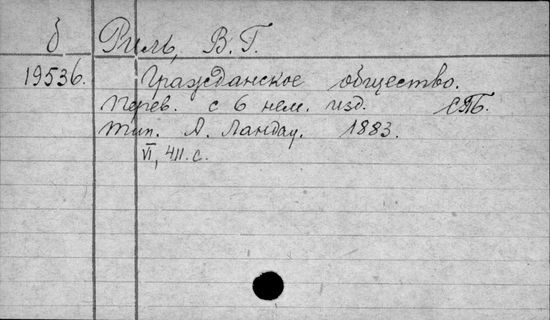 б Риль, В. Г.
19536. Гражданское общество.
Перев. с 6 нем. изд. СПБ.
тип. А. Ландау. 1883.
VI, 411 с.